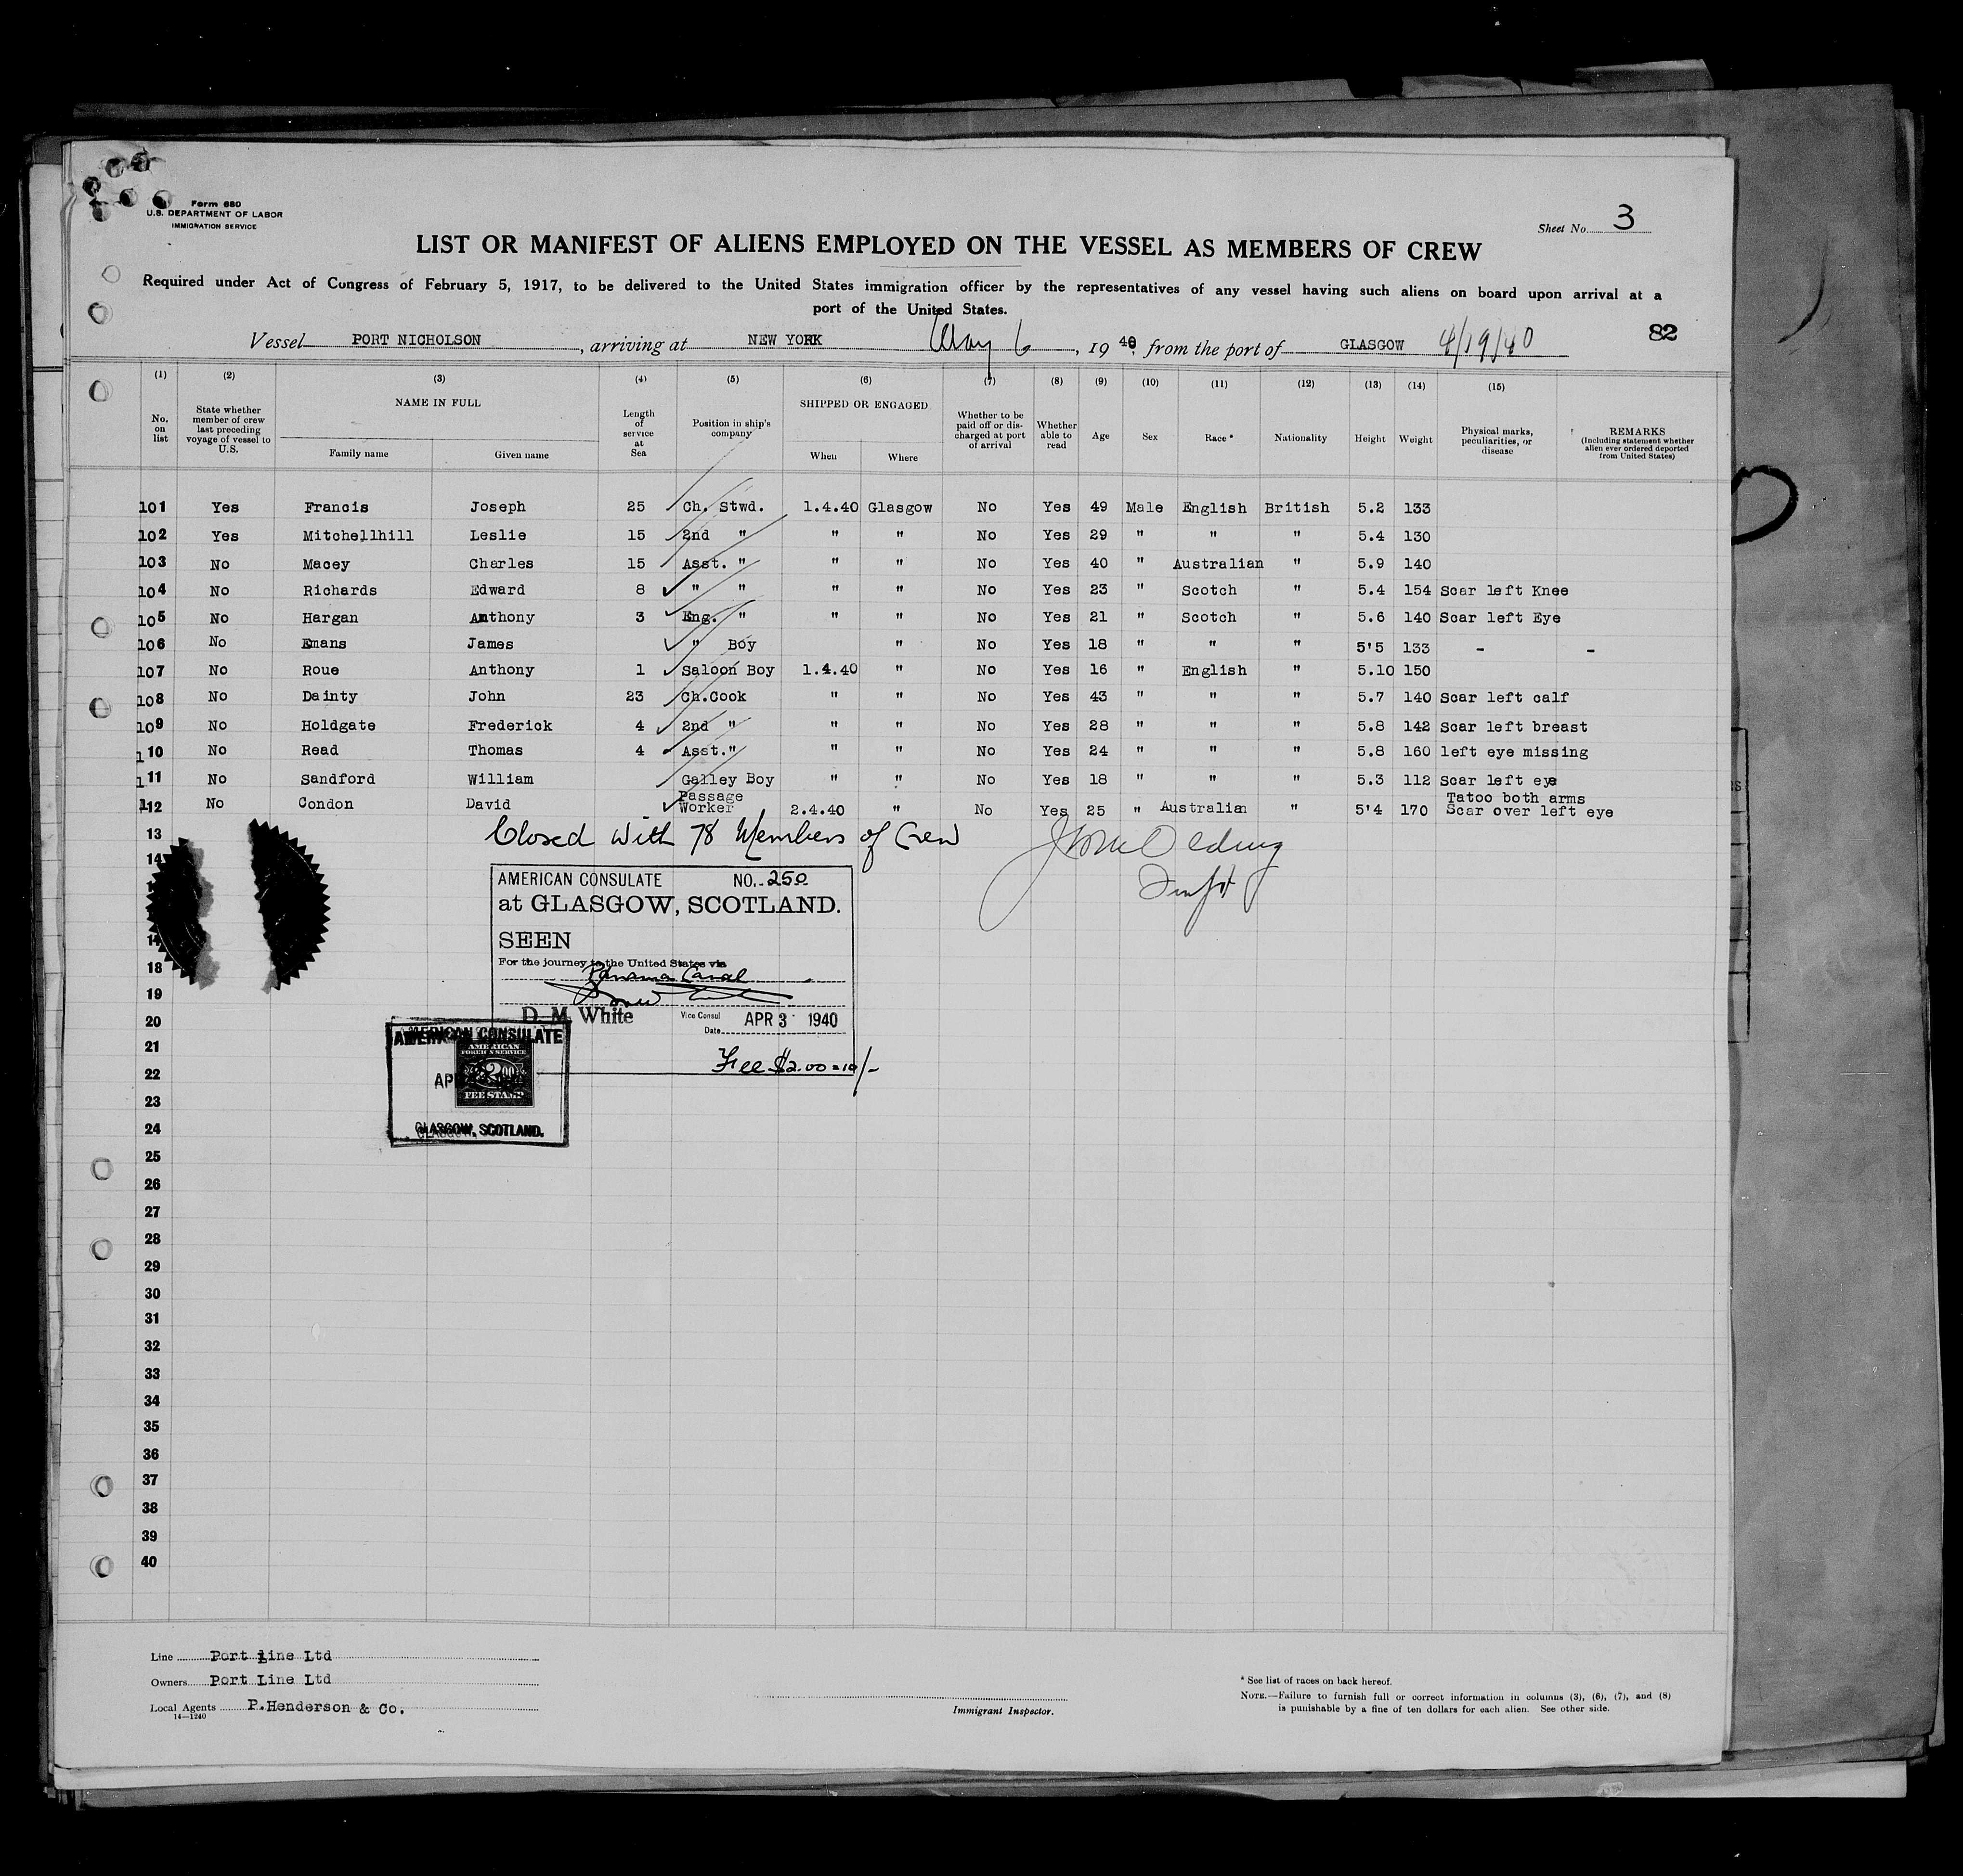 Form 680
U.S. DEPARTMENT OF LABOR
IMMIGRATION SERVICE
Sheet No. 3
LIST OR MANIFEST OF ALIENS EMPLOYED ON THE VESSEL AS MEMBERS OF CREW
Required under Act of Congress of February 5, 1917, to be delivered to the United States immigration officer by the representatives of any vessel having such aliens on board upon arrival at a
port of the United States.
82
Vessel PORT NICHOLSON, arriving at NEW YORK May 6, 1940 from the port of GLASGOW 4/19/40
(1) (2) (3) (4) (5) (6) (7) (8) (9) (10) (11) (12) (13) (14) (15)
No. on list
State whether member of crew last preceding voyage of vessel to U.S.
NAME IN FULL
Family name Given name
Length of service at Sea
Position in ship's company
SHIPPED OR ENGAGED
When Where
Whether to be paid off or discharged at port of arrival
Whether able to read
Age
Sex
Race *
Nationality
Height
Weight
Physical marks, peculiarities, or disease
REMARKS
(Including statement whether alien ever ordered deported from United States)
101 Yes Francis Joseph 25 Ch. Stwd. 1.4.40 Glasgow No Yes 49 Male English British 5.2 133
102 Yes Mitchellhill Leslie 15 2nd " " " No Yes 29 " " " 5.4 130
103 No Macey Charles 15 Asst. " " " No Yes 40 " Australian " 5.9 140
104 No Richards Edward 8 " " " " No Yes 23 " Scotch " 5.4 154 Scar left Knee
105 No Hargan Anthony 3 Eng. " " " No Yes 21 " Scotch " 5.6 140 Scar left Eye
106 No Emans James " Boy " No Yes 18 " " " 5'5 133 - -
107 No Roue Anthony 1 Saloon Boy 1.4.40 " No Yes 16 " English " 5.10 150
108 No Dainty John 23 Ch.Cook " " No Yes 43 " " " 5.7 140 Scar left calf
109 No Holdgate Frederick 4 2nd " " " No Yes 28 " " " 5.8 142 Scar left breast
110 No Read Thomas 4 Asst." " " No Yes 24 " " " 5.8 160 left eye missing
111 No Sandford William Galley Boy " " No Yes 18 " " " 5.3 112 Scar left eye
112 No Condon David Passage Worker 2.4.40 " No Yes 25 " Australian " 5'4 170 Tatoo both arms Scar over left eye
Closed with 78 Members of Crew
13
14
AMERICAN CONSULATE NO. 250
at GLASGOW, SCOTLAND.
SEEN
For the journey to the United States via
Panama Canal
D. M. White Vice Consul
Date APR 3 1940
Fee $2.00 = 10/-
AMERICAN CONSULATE
AMERICAN
FOREIGN SERVICE
$2.00
FEE STAMP
GLASGOW, SCOTLAND.
18
19
20
21
22
23
24
25
26
27
28
29
30
31
32
33
34
35
36
37
38
39
40
Line Port Line Ltd
Owners Port Line Ltd
Local Agents P.Henderson & Co.
14—1240
Immigrant Inspector.
* See list of races on back hereof.
NOTE.—Failure to furnish full or correct information in columns (3), (6), (7), and (8)
is punishable by a fine of ten dollars for each alien. See other side.